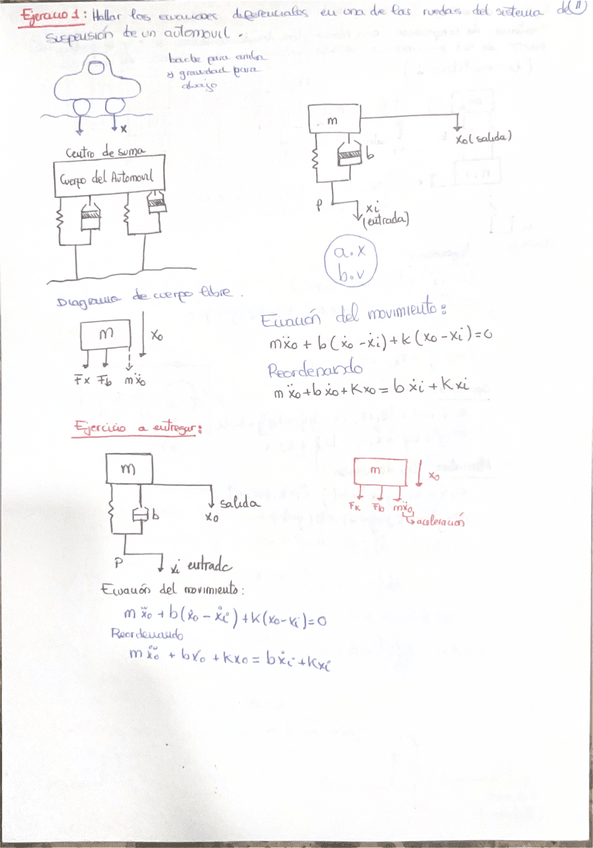 Ejercicio 1: Hallar las ecuaciones diferenciales en una de las ruedas del sistema de
11
suspensión de un automovil.
hacia para arriba
y gravedad para
abajo
x
Centro de suma
Cuerpo del Automovil
m
b
x₀ (salida)
P
xi
(entrada)
a.x
b.v
Diagrama de cuerpo libre.
m
x₀
Fk Fb mẍ₀
Ecuación del movimiento:
mẍ₀ + b(ẋ₀ - ẋi) + k(x₀ - xi) = 0
Reordenando
mẍ₀ + bẋ₀ + Kx₀ = bẋi + Kxi
Ejercicio a entregar:
m
b
salida
x₀
P
xi entrada
m
x₀
Fk Fb mẍ₀
aceleración
Ecuación del movimiento:
mẍ₀ + b(ẋ₀ - ẋi) + k(x₀ - xi) = 0
Reordenando
mẍ₀ + bẋ₀ + kx₀ = bẋi + kxi